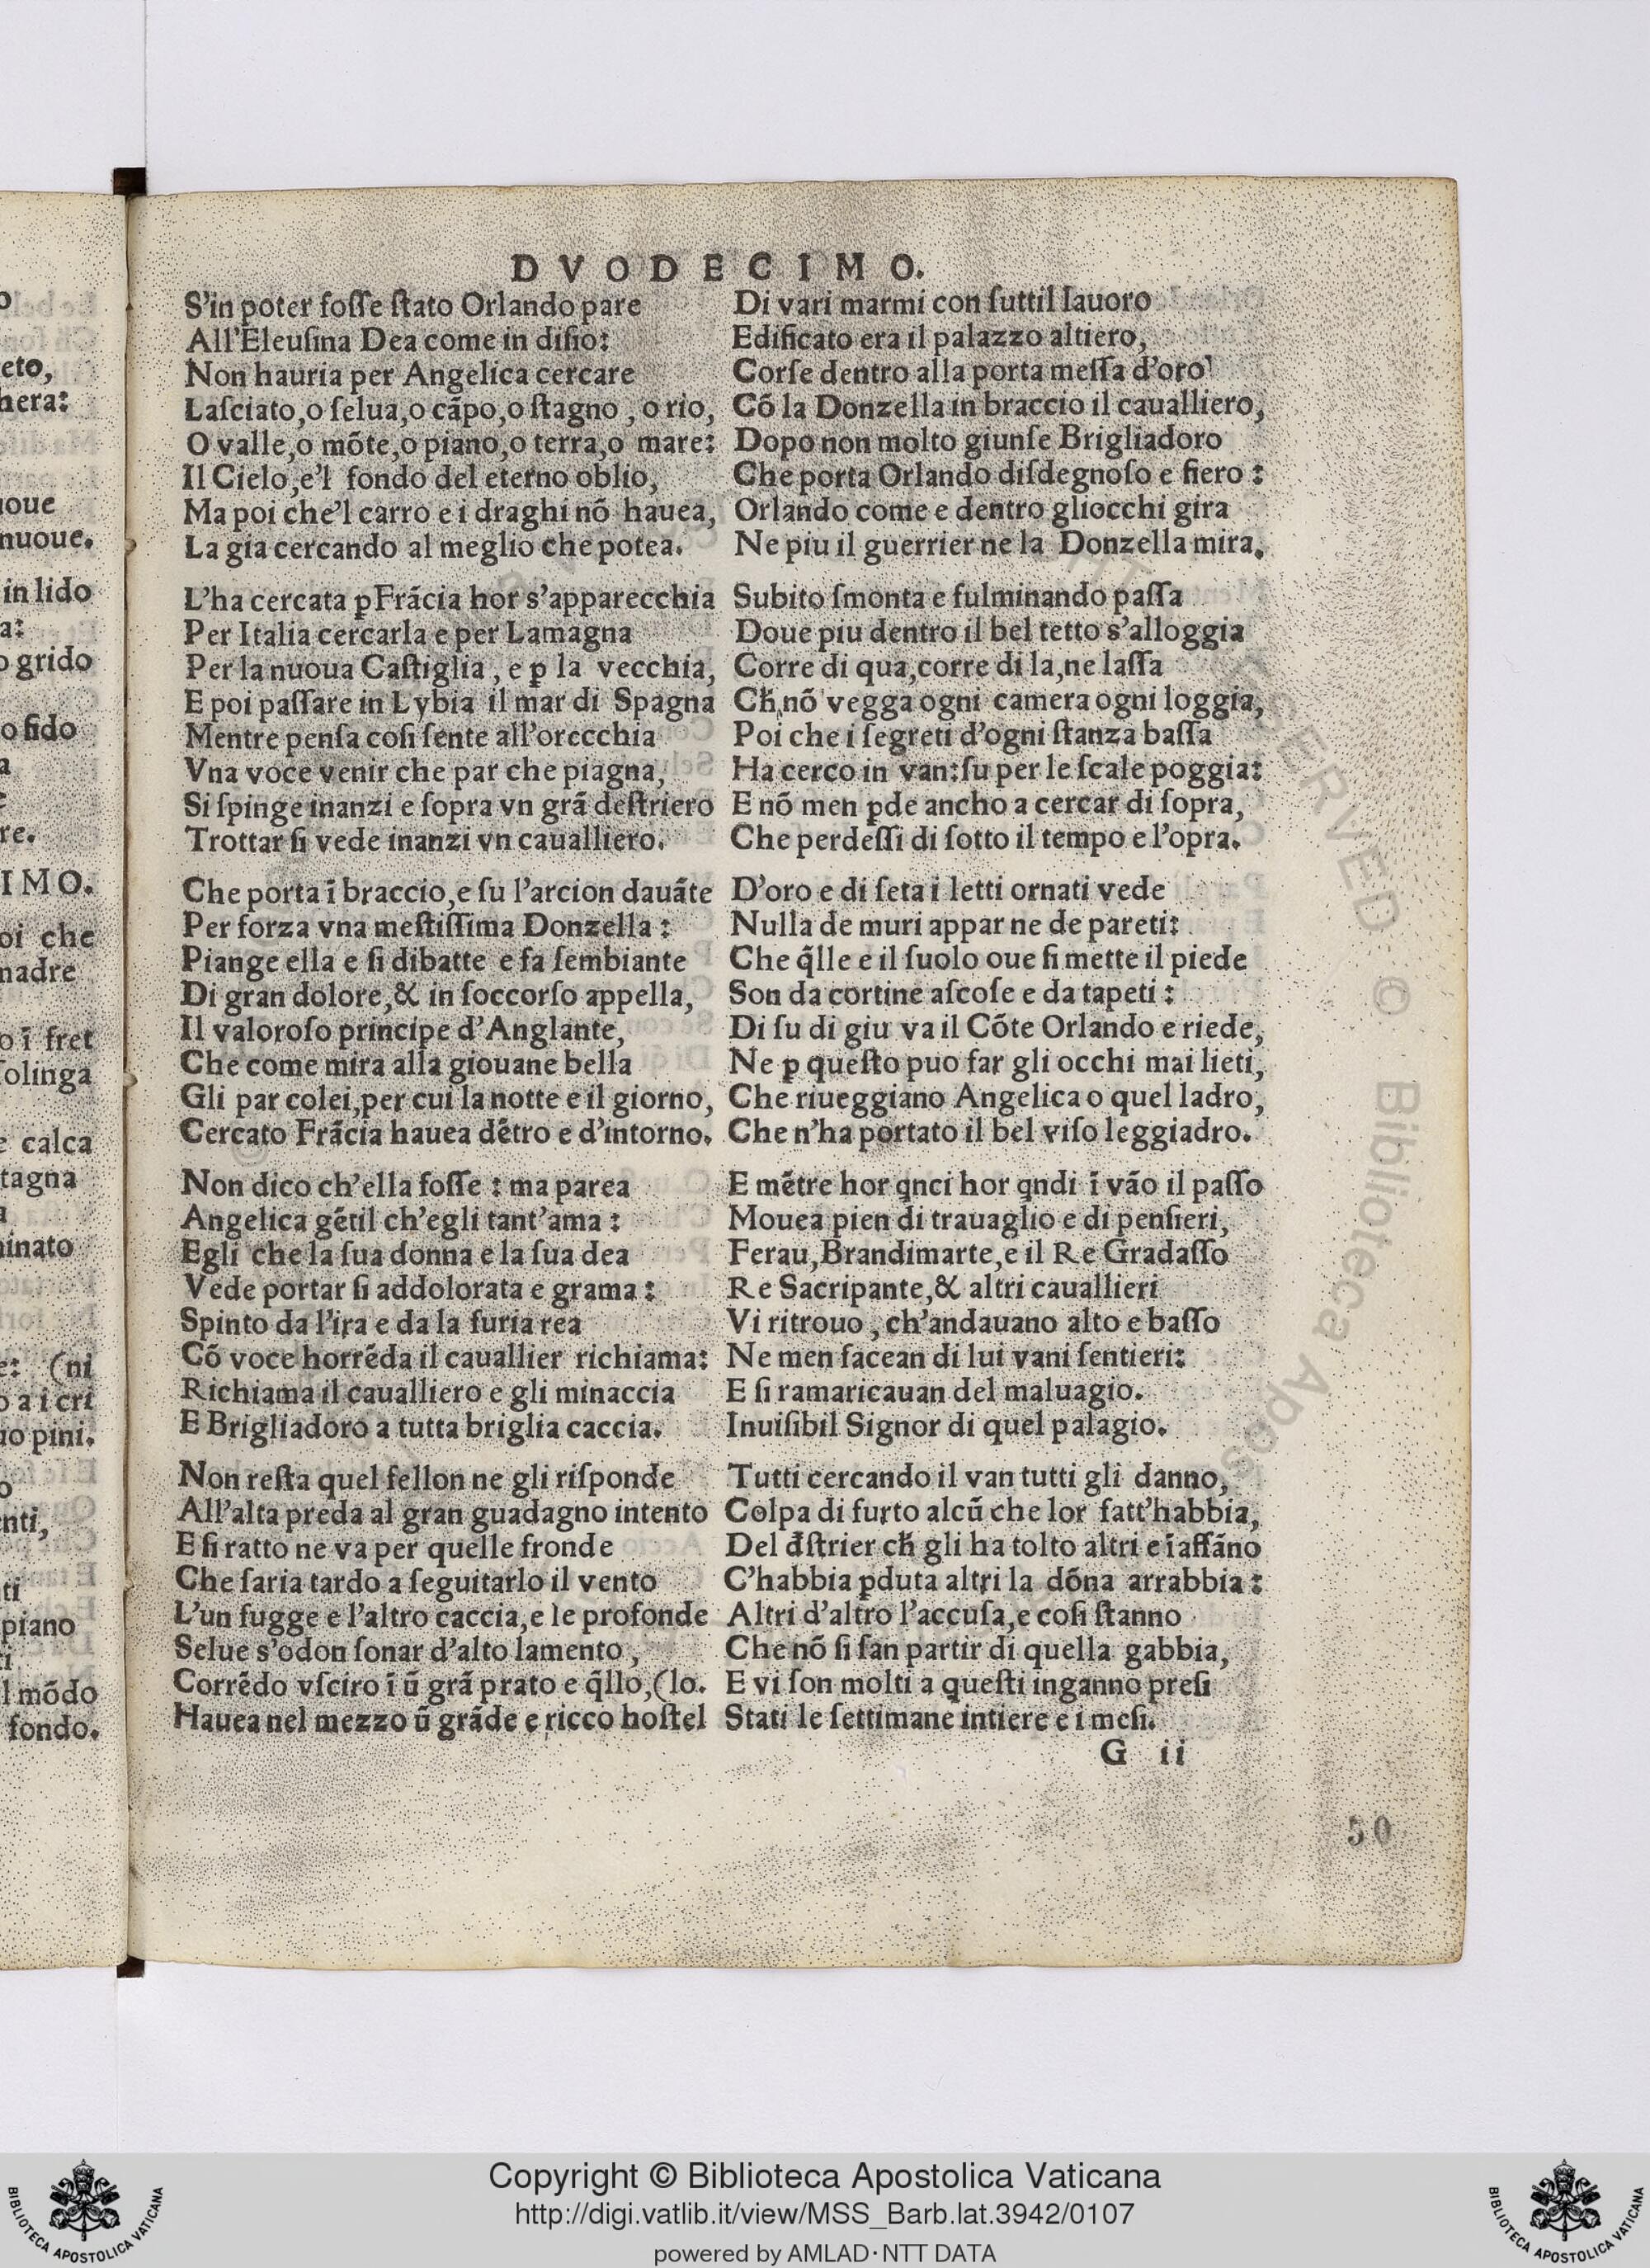 DVODECIMO.
S'in poter foſſe ſtato Orlando pare
All'Eleuſina Dea come in diſio:
Non hauria per Angelica cercare
Laſciato,o ſelua,o cãpo,o ſtagno , o rio,
O valle,o mõte,o piano,o terra,o mare:
Il Cielo,e'l fondo del eterno oblio,
Ma poi che'l carro e i draghi nõ hauea,
La gia cercando al meglio che potea.
L'ha cercata ꝑ Frãcia hor s'apparecchia
Per Italia cercarla e per Lamagna
Per la nuoua Caſtiglia , e ꝑ la vecchia,
E poi paſſare in Lybia il mar di Spagna
Mentre penſa coſi ſente all'orecchia
Vna voce venir che par che piagna,
Si ſpinge inanzi e ſopra vn grã deſtriero
Trottar ſi vede inanzi vn caualliero.
Che porta ĩ braccio,e ſu l'arcion dauãte
Per forza vna meſtiſſima Donzella :
Piange ella e ſi dibatte e fa ſembiante
Di gran dolore,& in ſoccorſo appella,
Il valoroſo principe d'Anglante,
Che come mira alla giouane bella
Gli par colei,per cui la notte e il giorno,
Cercato Frãcia hauea dẽtro e d'intorno.
Non dico ch'ella foſſe : ma parea
Angelica gẽtil ch'egli tant'ama :
Egli che la ſua donna e la ſua dea
Vede portar ſi addolorata e grama :
Spinto da l'ira e da la furia rea
Cõ voce horrẽda il cauallier richiama:
Richiama il caualliero e gli minaccia
E Brigliadoro a tutta briglia caccia.
Non reſta quel fellon ne gli riſponde
All'alta preda al gran guadagno intento
E ſi ratto ne va per quelle fronde
Che ſaria tardo a ſeguitarlo il vento
L'un fugge e l'altro caccia,e le profonde
Selue s'odon ſonar d'alto lamento ,
Corrẽdo vſciro ĩ ũ grã prato e q̃llo,(lo.
Hauea nel mezzo ũ grãde e ricco hoſtel
Di vari marmi con ſuttil lauoro
Edificato era il palazzo altiero,
Corſe dentro alla porta meſſa d'oro
Cõ la Donzella in braccio il caualliero,
Dopo non molto giunſe Brigliadoro
Che porta Orlando diſdegnoſo e fiero :
Orlando come e dentro gliocchi gira
Ne piu il guerrier ne la Donzella mira.
Subito ſmonta e fulminando paſſa
Doue piu dentro il bel tetto s'alloggia
Corre di qua,corre di la,ne laſſa
Cħ nõ vegga ogni camera ogni loggia,
Poi che i ſegreti d'ogni ſtanza baſſa
Ha cerco in van:ſu per le ſcale poggia:
E nõ men ꝑde ancho a cercar di ſopra,
Che perdeſſi di ſotto il tempo e l'opra.
D'oro e di ſeta i letti ornati vede
Nulla de muri appar ne de pareti:
Che q̃lle e il ſuolo oue ſi mette il piede
Son da cortine aſcoſe e da tapeti :
Di ſu di giu va il Cõte Orlando e riede,
Ne ꝑ queſto puo far gli occhi mai lieti,
Che riueggiano Angelica o quel ladro,
Che n'ha portato il bel viſo leggiadro.
E mẽtre hor qnci hor qndi ĩ vão il paſſo
Mouea pien di trauaglio e di penſieri,
Ferau,Brandimarte,e il Re Gradaſſo
Re Sacripante,& altri cauallieri
Vi ritrouo , ch'andauano alto e baſſo
Ne men facean di lui vani ſentieri:
E ſi ramaricauan del maluagio.
Inuiſibil Signor di quel palagio.
Tutti cercando il van tutti gli danno,
Colpa di furto alcũ che lor fatt'habbia,
Del đſtrier cħ gli ha tolto altri e ĩ affãno
C'habbia ꝑduta altri la dõna arrabbia :
Altri d'altro l'accuſa,e coſi ſtanno
Che nõ ſi ſan partir di quella gabbia,
E vi ſon molti a queſti inganno preſi
Stati le ſettimane intiere e i meſi.
G ii
50
Copyright © Biblioteca Apostolica Vaticana
http://digi.vatlib.it/view/MSS_Barb.lat.3942/0107
powered by AMLAD·NTT DATA
BIBLIOTECA APOSTOLICA VATICANA
BIBLIOTECA APOSTOLICA VATICANA